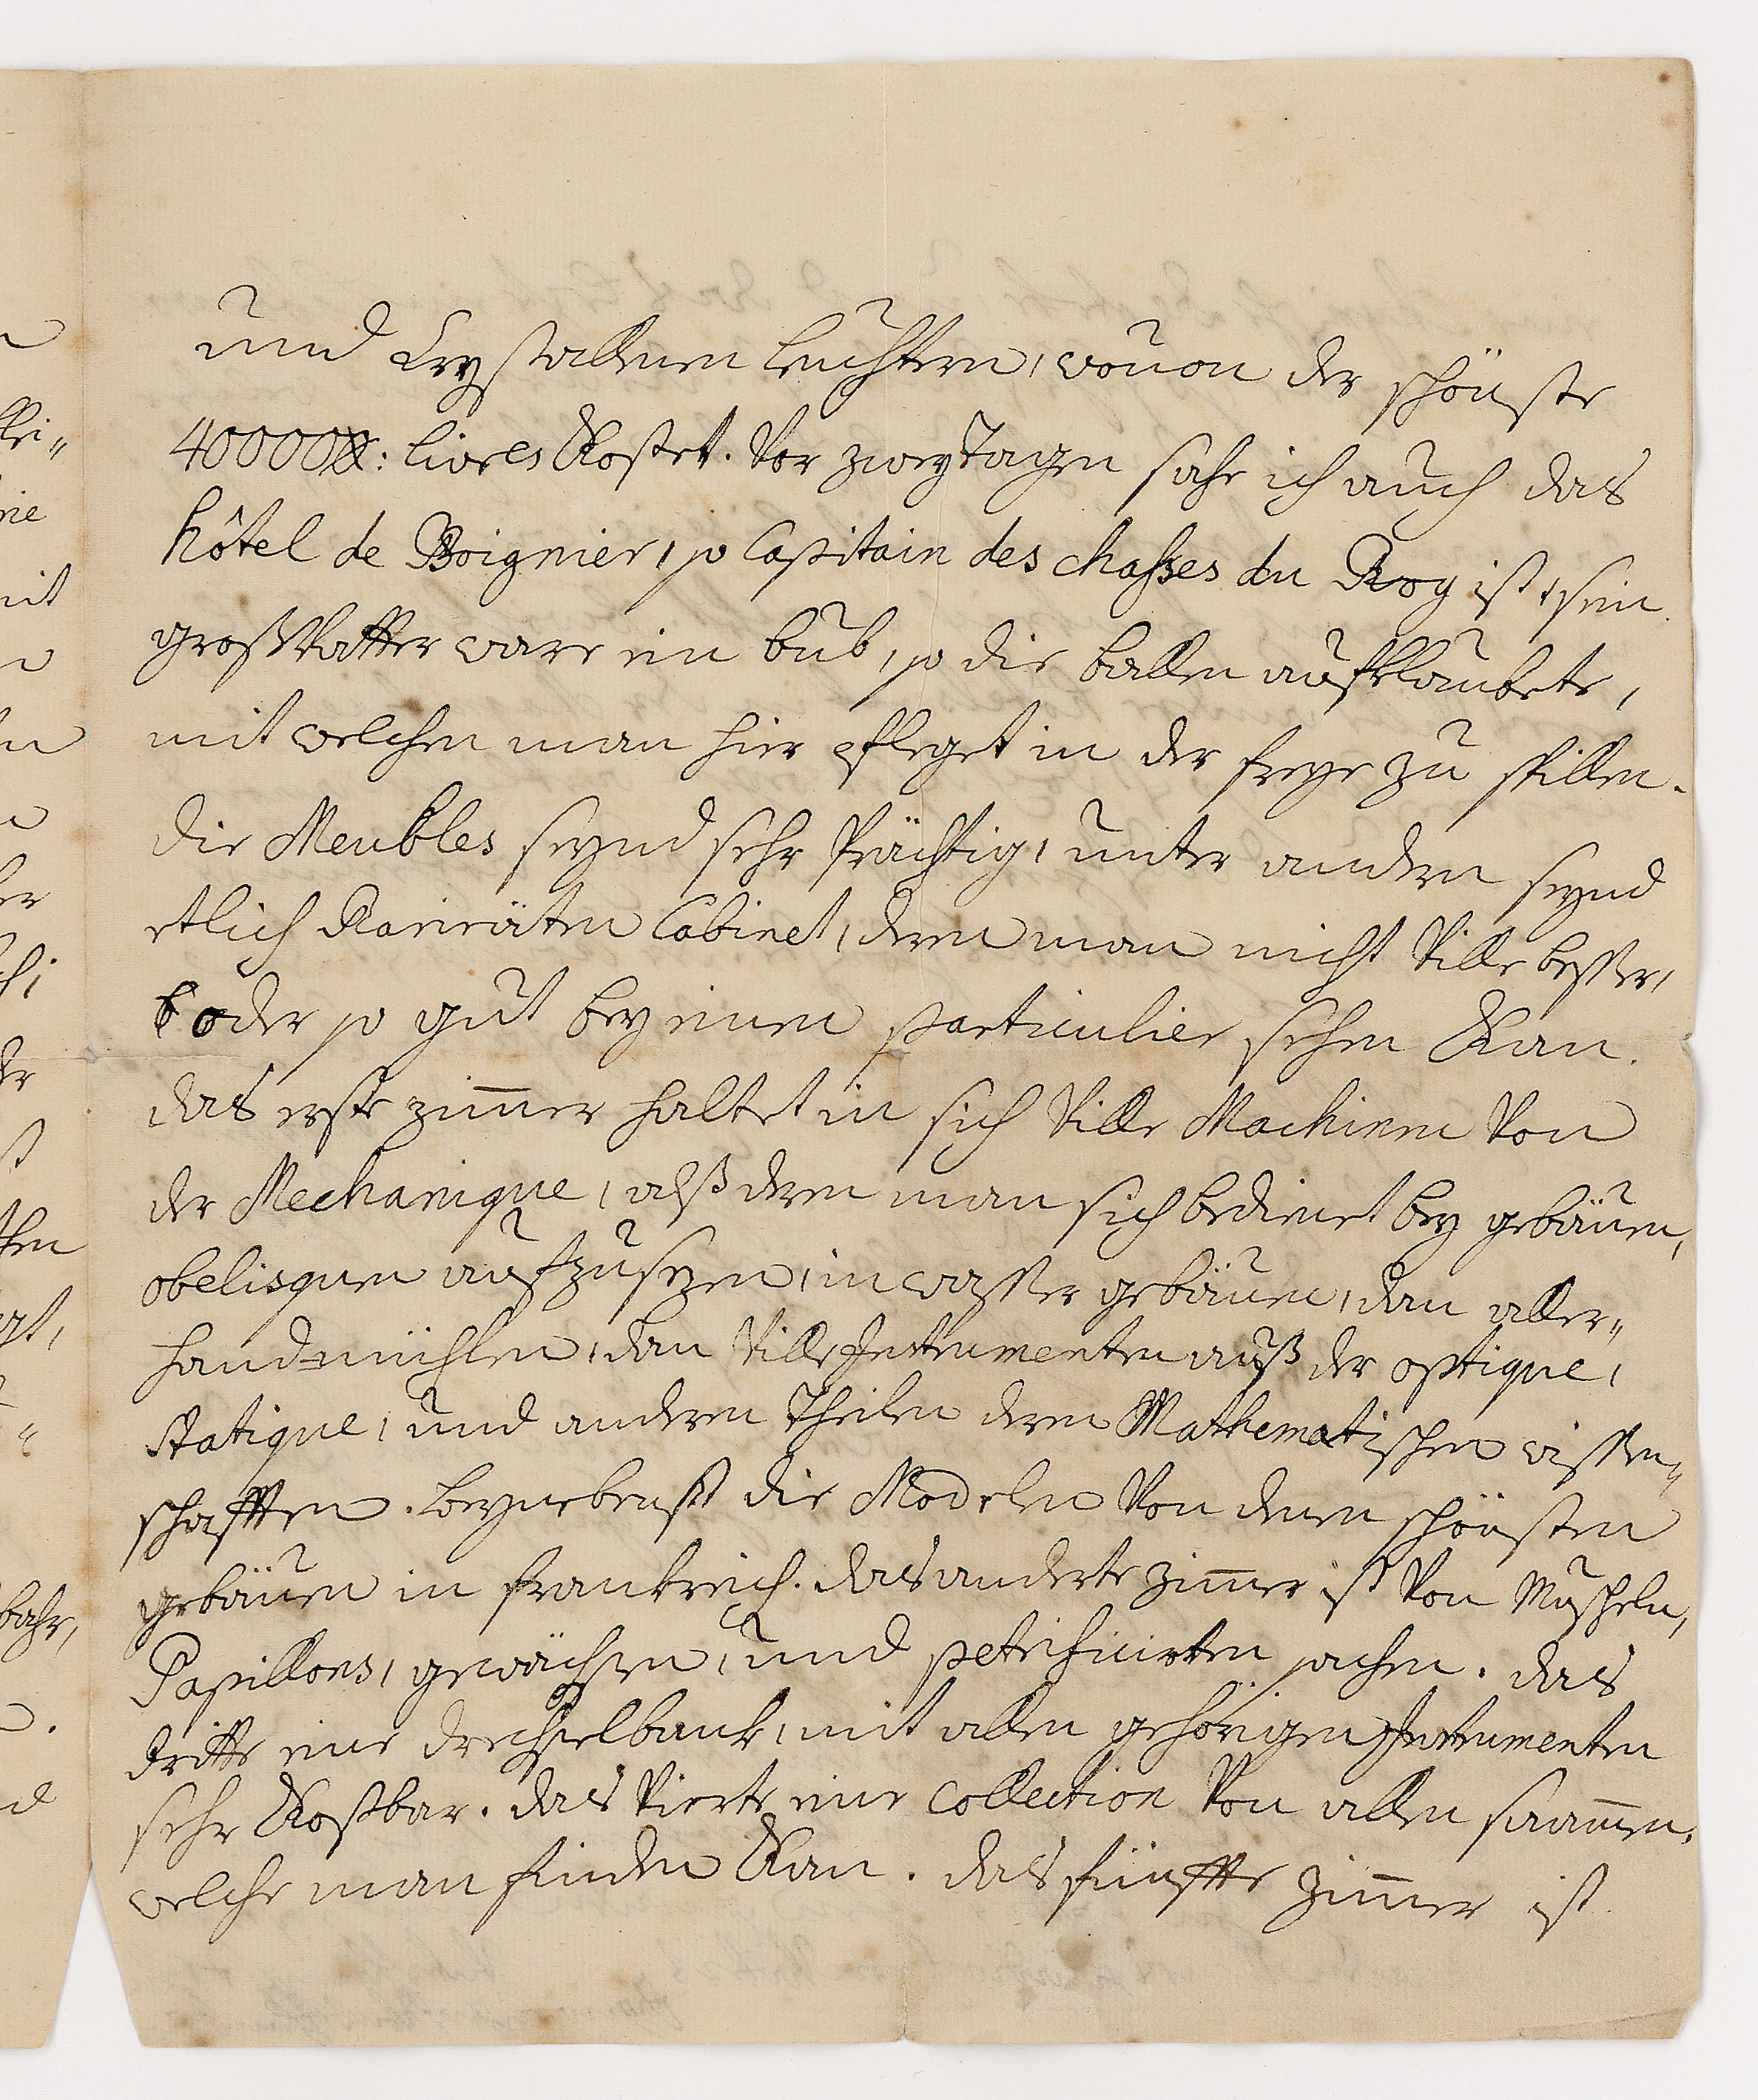 und Crystallenen leuchtern, wouon der schönste
40000 : livres Kostet. Vor zwey Tagen sahe ich auch das
hôtel de Boignier, so Capitain des chasses du Roy ist, sein
großVatter ware ein bub, so die ballen aufklaubete,
mit welchen man hier pfleget in der freye zu spillen.
die Meubles seynd sehr Prächtig, unter andern seynd
etlich Rarieäten Cabinet, deren man nicht Ville besser,
oder so gut bey einen particulier sehen Kan.
das erste zimmer haltet in sich Ville Machinen Von
der Mechanique, alß deren man sich bedienet bey gebäuen,
obelisquen aufzusezen, in wasser gebäuen, dan aller„
hand=mühlen, dan Ville Instrumenten auß der optique,
statique, und anderen Theilen deren Mathematischen wissen„
schafften. beynebenst die Modelen Von denen schönsten
gebäuen in frankreich. das anderte zimmer ist Von Muscheln,
Papillons, gewächsen, und petrificirten sachen. das
dritte eine drechselbank, mit allen gehörigen Instrumenten
sehr Kostbar. das Vierte eine Collection Von allen saamen,
welche man finden Kan. das fünffte zimmer ist